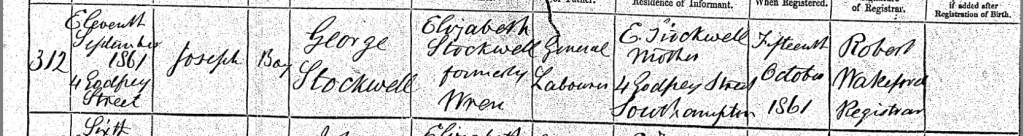 of Father.
Residence of Informant.
When Registered.
of Registrar.
if added after
Registration of Birth.
312
Eleventh
September
1861
4 Godfrey
Street
Joseph
Boy
George
Stockwell
Elizabeth
Stockwell
formerly
Wren
General
Labourer
E. Stockwell
Mother
4 Godfrey Street
Southampton
Fifteenth
October
1861
Robert
Wakeford
Registrar
Sixth
Elizabeth